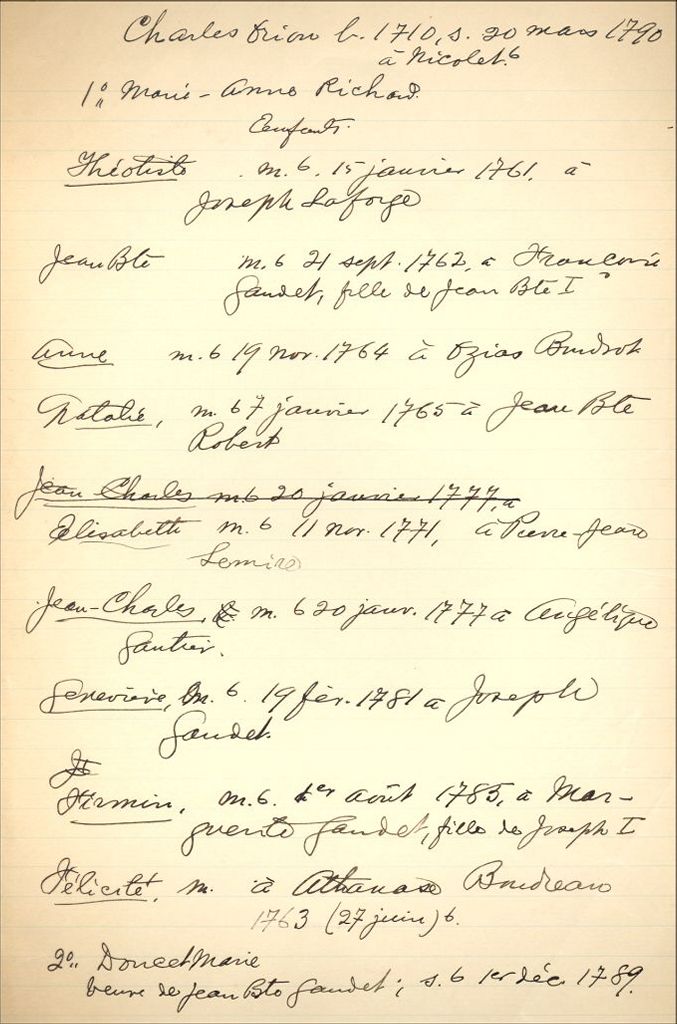 Charles Orion b. 1710, s. 20 mars 1790
à Nicolet.6
1° Marie-Anne Richard.
Enfants.
Théotiste m. 6 15 janvier 1761, à
Joseph Laforge
Jean Bte m. 6 21 sept. 1762, à
Gaudet, fille de Jean Bte I
Anne m. 6 19 nov. 1764 à Ozias Boudrot
Natalie, m. 6 7 janvier 1765 à Jean Bte
Robert
Jean Charles m. 6 20 janvier 1777, à
Elisabeth m. 6 11 nov. 1771, à Pierre-Jean
Lemire
Jean-Charles, m. 6 20 janv. 1777 à Angélique
Gautier.
Geneviève, m. 6. 19 fév. 1781 à Joseph
Gaudet.
Firmin, m. 6. 1er août 1785, à Mar-
guerite Gaudet, fille de Joseph I
Félicité, m. à Athanase Boudreau
1763 (27 juin) 6.
2° Doucet Marie
veuve de Jean Bte Gaudet; s. 6 1er déc. 1789.